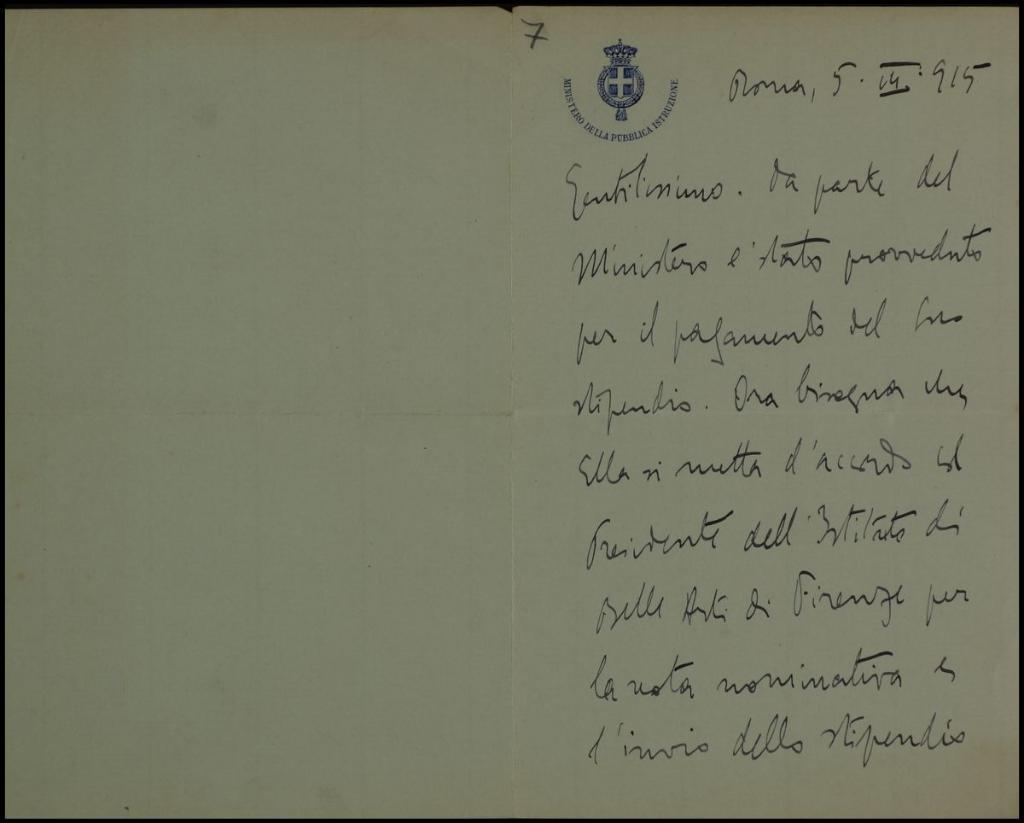 7
MINISTERO DELLA PUBBLICA ISTRUZIONE
Roma, 5. III. 915
Gentilissimo. Da parte del
Ministero è stato provveduto
per il pagamento del Suo
stipendio. Ora bisogna che
Ella si metta d'accordo col
Presidente dell'Istituto di
Belle Arti di Firenze per
la nota nominativa e
l'invio dello stipendio